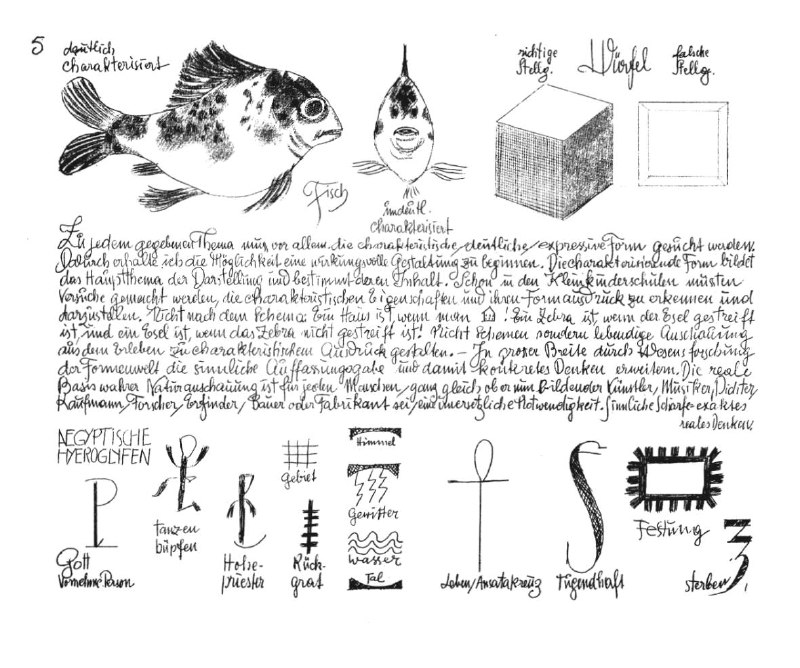 5
deutlich
charakterisiert
Fisch
undeutl.
charakterisiert
richtige
Stellg.
Würfel
falsche
Stellg.
Zu jedem gegebenen Thema muss vor allem die charakteristische, deutliche, expressive Form gesucht werden.
Dadurch erhalte ich die Möglichkeit eine wirkungsvolle Gestaltung zu beginnen. Die charakterisierende Form bildet
das Hauptthema der Darstellung und bestimmt deren Inhalt. Schon in den Kleinkinderschulen müssten
Versuche gemacht werden, die charakteristischen Eigenschaften und ihren Formausdruck zu erkennen und
darzustellen. Nicht nach dem Schema: Ein Haus ist, wenn man ! Ein Zebra ist, wenn der Esel gestreift
ist, und ein Esel ist, wenn das Zebra nicht gestreift ist! Nicht Schemen sondern lebendige Anschauung
aus dem Erleben zu charakteristischem Ausdruck gestalten. – In grosser Breite durch Wesensforschung
der Formenwelt die sinnliche Auffassungsgabe und damit konkretes Denken erweitern. Die reale
Basis wahrer Naturanschauung ist für jeden Menschen, ganz gleich ob er nun bildender Künstler, Musiker, Dichter
Kaufmann, Forscher, Erfinder, Bauer oder Fabrikant sei, eine unersetzliche Notwendigkeit. Sinnliche Schärfe - exaktes
reales Denken.
AEGYPTISCHE
HYEROGLYFEN
Gott
Vornehme Person
tanzen
hüpfen
Hohe-
priester
Gebiet
Rück-
grat
Himmel
Gewitter
Wasser
Tal
Leben/Ansatakreuz
Tugendhaft
Festung
sterben